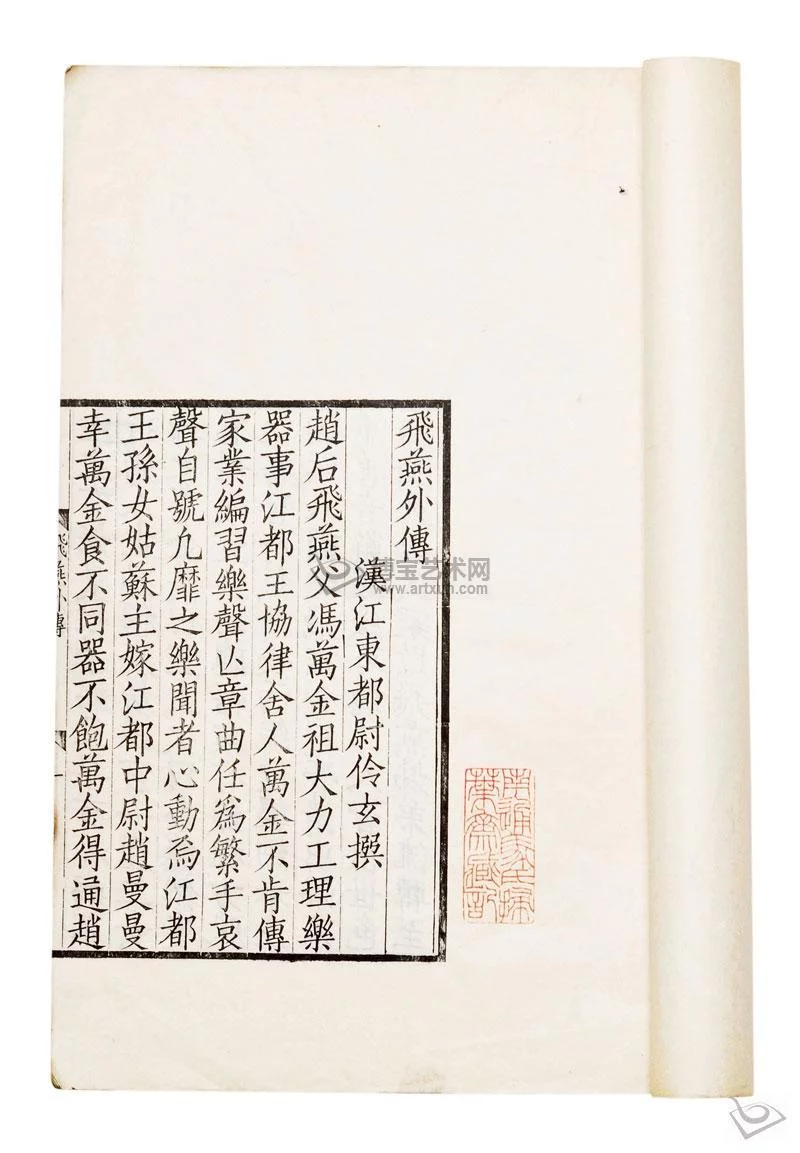 飛燕外傳
漢江東都尉伶玄撰
趙后飛燕父馮萬金祖大力工理樂
器事江都王協律舍人萬金不肯傳
家業編習樂聲亾章曲任爲繁手哀
聲自號九靡之樂聞者心動焉江都
王孫女姑蘇主嫁江都中尉趙曼曼
幸萬金食不同器不飽萬金得通趙
飛燕外傳
一
博宝艺术网
www.artxun.com